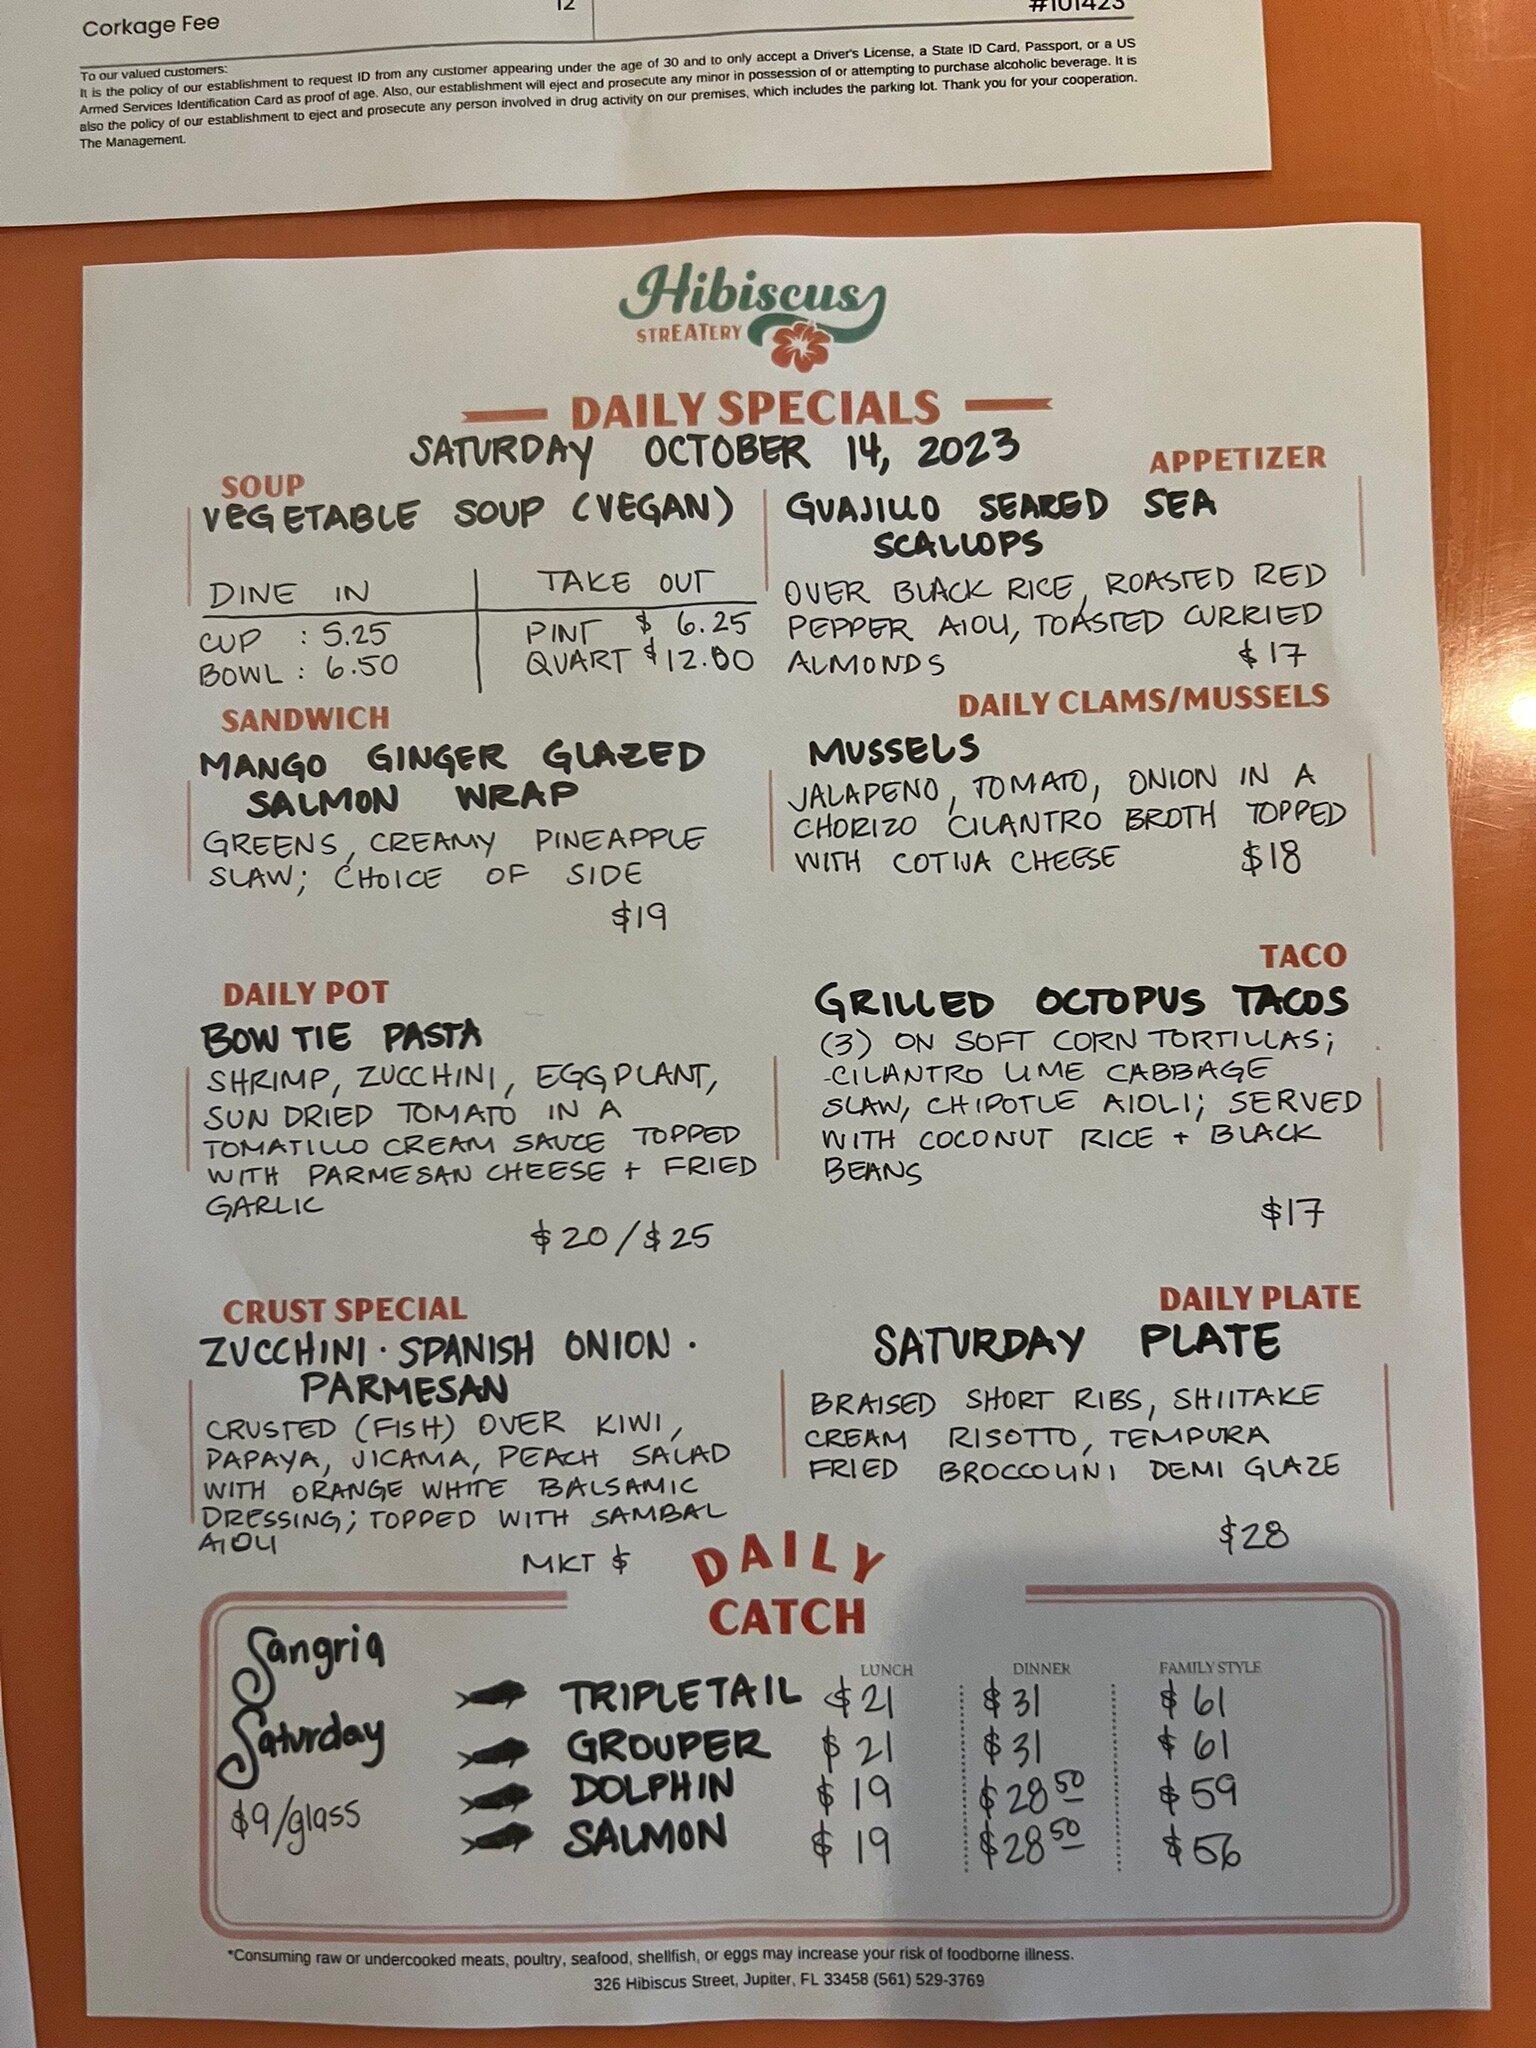 Corkage Fee
12
#101423
To our valued customers:
It is the policy of our establishment to request ID from any customer appearing under the age of 30 and to only accept a Driver's License, a State ID Card, Passport, or a US
Armed Services Identification Card as proof of age. Also, our establishment will eject and prosecute any minor in possession of or attempting to purchase alcoholic beverage. It is
also the policy of our establishment to eject and prosecute any person involved in drug activity on our premises, which includes the parking lot. Thank you for your cooperation.
The Management.
Hibiscus
STREATERY
DAILY SPECIALS
SATURDAY OCTOBER 14, 2023
SOUP
VEGETABLE SOUP (VEGAN)
DINE IN
TAKE OUT
CUP : 5.25
PINT $ 6.25
BOWL : 6.50
QUART $12.00
APPETIZER
GUAJILLO SEARED SEA
SCALLOPS
OVER BLACK RICE, ROASTED RED
PEPPER AIOLI, TOASTED CURRIED
ALMONDS $17
SANDWICH
MANGO GINGER GLAZED
SALMON WRAP
GREENS, CREAMY PINEAPPLE
SLAW; CHOICE OF SIDE
$19
DAILY CLAMS/MUSSELS
MUSSELS
JALAPENO, TOMATO, ONION IN A
CHORIZO CILANTRO BROTH TOPPED
WITH COTIJA CHEESE $18
DAILY POT
BOW TIE PASTA
SHRIMP, ZUCCHINI, EGGPLANT,
SUN DRIED TOMATO IN A
TOMATILLO CREAM SAUCE TOPPED
WITH PARMESAN CHEESE + FRIED
GARLIC
$20/$25
TACO
GRILLED OCTOPUS TACOS
(3) ON SOFT CORN TORTILLAS;
CILANTRO LIME CABBAGE
SLAW, CHIPOTLE AIOLI; SERVED
WITH COCONUT RICE + BLACK
BEANS
$17
CRUST SPECIAL
ZUCCHINI · SPANISH ONION ·
PARMESAN
CRUSTED (FISH) OVER KIWI,
PAPAYA, JICAMA, PEACH SALAD
WITH ORANGE WHITE BALSAMIC
DRESSING; TOPPED WITH SAMBAL
AIOLI
MKT $
DAILY PLATE
SATURDAY PLATE
BRAISED SHORT RIBS, SHIITAKE
CREAM RISOTTO, TEMPURA
FRIED BROCCOLINI DEMI GLAZE
$28
DAILY
CATCH
Sangria
Saturday
$9/glass
LUNCH DINNER FAMILY STYLE
TRIPLETAIL $21 $31 $61
GROUPER $21 $31 $61
DOLPHIN $19 $28 50 $59
SALMON $19 $28 50 $56
*Consuming raw or undercooked meats, poultry, seafood, shellfish, or eggs may increase your risk of foodborne illness.
326 Hibiscus Street, Jupiter, FL 33458 (561) 529-3769